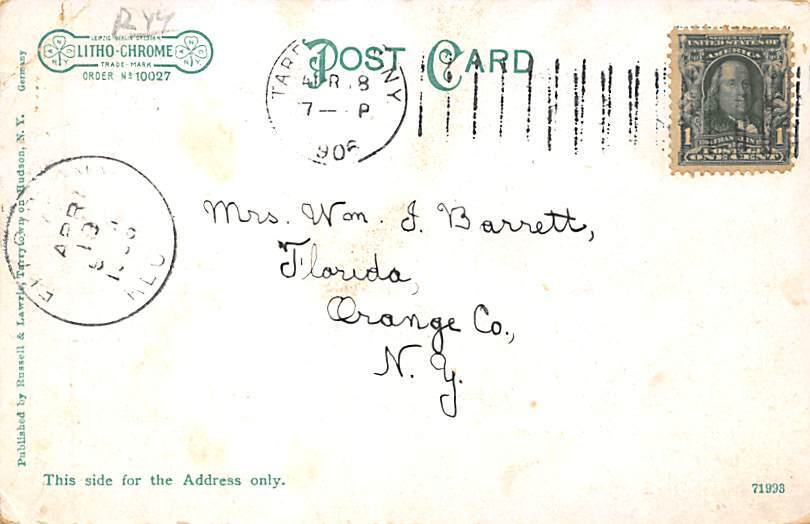 LEIPZIG BERLIN DRESDEN
LITHO-CHROME
TRADE-MARK
ORDER Nº 10027
POST CARD
NY
7— P
UNITED STATES OF
AMERICA
1 1
POSTAGE
ONE CENT
Mrs. Wm. J. Barrett,
Florida,
Orange Co.,
N. Y.
Published by Russell & Lawrie, Tarrytown on Hudson, N. Y. Germany
This side for the Address only.
71993